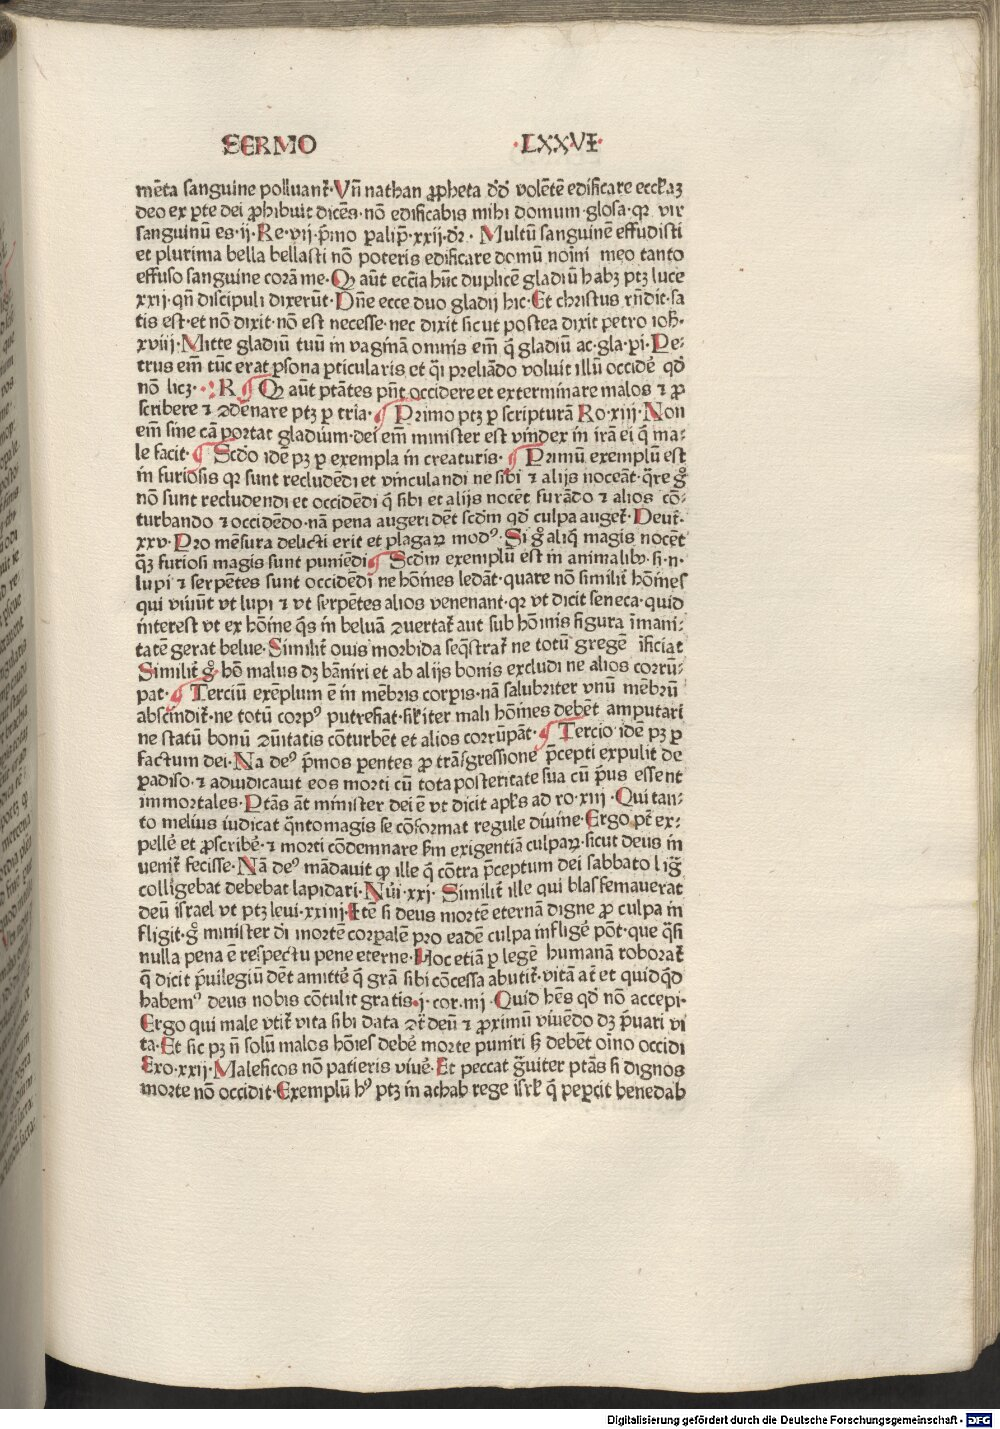 SERMO ·LXXVI·
mēta sanguine polluant᷑·Vn̄ nathan ꝓpheta d'd' volētē edificare eccƚaꝫ
deo ex ꝑte dei ꝓhibuit dicēs·nō edificabis mihi domum·glosa·qꝛ vir
sanguinū es·ij·Re·vij·p̄mo ꝑalip̄·xxij·dr̄· Multū sanguinē effudisti
et plurima bella bellasti nō poteris edificare domū noīni meo tanto
effuso sanguine corā me·Qꝫ aūt eccīa hūc duplicē gladiū habꝫ ptꝫ luce
xxij·qn̄ discipuli dixerūt·Dn̄e ecce duo gladij hic·Et christus rn̄dit·sa
tis est·et nō dixit·nō est necesse·nec dixit sicut postea dixit petro ioh̄·
xviij·Mitte gladiū tuū in vaginā omnis em̄ q̄ gladiū ac·gla·ꝑi·Pe⸗
trus em̄ tūc erat ꝑsona ꝑticularis et q̄i preliādo voluit illū occide᷑ qd'
nō licꝫ·⁖R ¶ Qꝫ aūt ptātes pn̄t occidere et exterminare malos ⁊ ꝓ
scribere ⁊ ꝯdēnare ptꝫ ꝑ tria·¶ Primo ptꝫ ꝑ scripturā Ro·xiij·Non
em̄ sine cā portat gladium·dei em̄ minister est vindex in irā ei q̄ ma⸗
le facit·¶ Scd'o idē pꝫ ꝑ exempla in creaturis·¶ Primū exemplū est
in furiosis qꝛ sunt recludēdi et vinculandi ne sibi ⁊ alijs noceāt·q̄re gͦ
nō sunt recludendi et occidēdi q̄ sibi et alijs nocēt furādo ⁊ alios cō⸗
turbando ⁊ occidēdo·nā pena augeri dēt scdm̄ qd' culpa auget᷑·Deut᷑·
xxv·Pro mēsura delicti erit et plagaꝝ modꝰ·Si gͦ aliq̄ magis nocēt
q̄ꝫ furiosi magis sunt puniēdi¶ Scdm̄ exemplū est in animalibꝫ·si·n·
lupi ⁊ serpētes sunt occidēdi ne hōines ledāt·quare nō similit᷑ hōines
qui viuūt vt lupi ⁊ vt serpētes alios venenant·qꝛ vt dicit seneca·quid
interest vt ex hōine q̄s in beluā ꝯuertat᷑ aut sub hōinis figura īmani⸗
tatē gerat belue·Similit᷑ ouis morbida seq̄strat᷑ ne totū gregē īficiat
Similit᷑ gͦ hō malus dꝫ bāniri et ab alijs bonis excludi ne alios corrū⸗
pat·¶ Terciū exēplum ē in mēbris corꝑis·nā salubriter vnū mēbrū
abscindit᷑·ne totū corpꝰ putrefiat·siƙiter mali hōines debēt amputari
ne statū bonū ꝯūitatis cōturbēt et alios corrūpāt·¶ Tercio idē pꝫ ꝑ
factum dei·Na deꝰ p̄mos ꝑentes ꝓ trāsgressione p̄cepti expulit de
ꝑadiso·⁊ adiudicauit eos morti cū tota posteritate sua cū p̄us essent
immortales·Ptās āt minister dei ē vt dicit apƚs ad ro·xiij·Qui tan⸗
to melius iudicat q̄nto magis se cōformat regule diuine·Ergo pt̄ ex⸗
pelle᷑ et ꝓscribe᷑·⁊ morti cōdemnare ẜm exigentiā culpaꝝ·sicut deus in
uenit᷑ fecisse·Nā deꝰ mādauit ꝙ ille q̄ cōtra p̄ceptum dei sabbato liḡ
colligebat debebat lapidari·Nūi·xxj·Similit᷑ ille qui blasfemauerat
deū israel vt ptꝫ leui·xxiiij·Itē si deus mortē eternā digne ꝓ culpa in
fligit·gͦ minister d'i mortē corꝑalē pro eadē culpa inflige᷑ pōt·que q̄si
nulla pena ē respectu pene eterne·Hoc etiā ꝑ legē humanā roborat᷑
q̄ dicit p̄uilegiū dēt amitte᷑ q̄ grā sibi cōcessa abutit᷑·vitā at᷑ et quidq̄d
habemꝰ deus nobis cōtulit gratis·j·cor·iiij·Quid hēs qd' nō accepi·
Ergo qui male vtit᷑ vita sibi data ꝯt᷑ deū ⁊ ꝓximū viuēdo dꝫ p̄uari vi
ta·Et sic pꝫ n̄ solū malos hōies debe᷑ morte puniri sꝫ debēt oīno occidi
Exo·xxij·Maleficos nō patieris viue᷑·Et peccat g̃uiter ptās si dignos
morte nō occidit·Exemplū hꝰ ptꝫ in achab rege isrƚ q̄ peꝑcit benedab
Digitalisierung gefördert durch die Deutsche Forschungsgemeinschaft · DFG